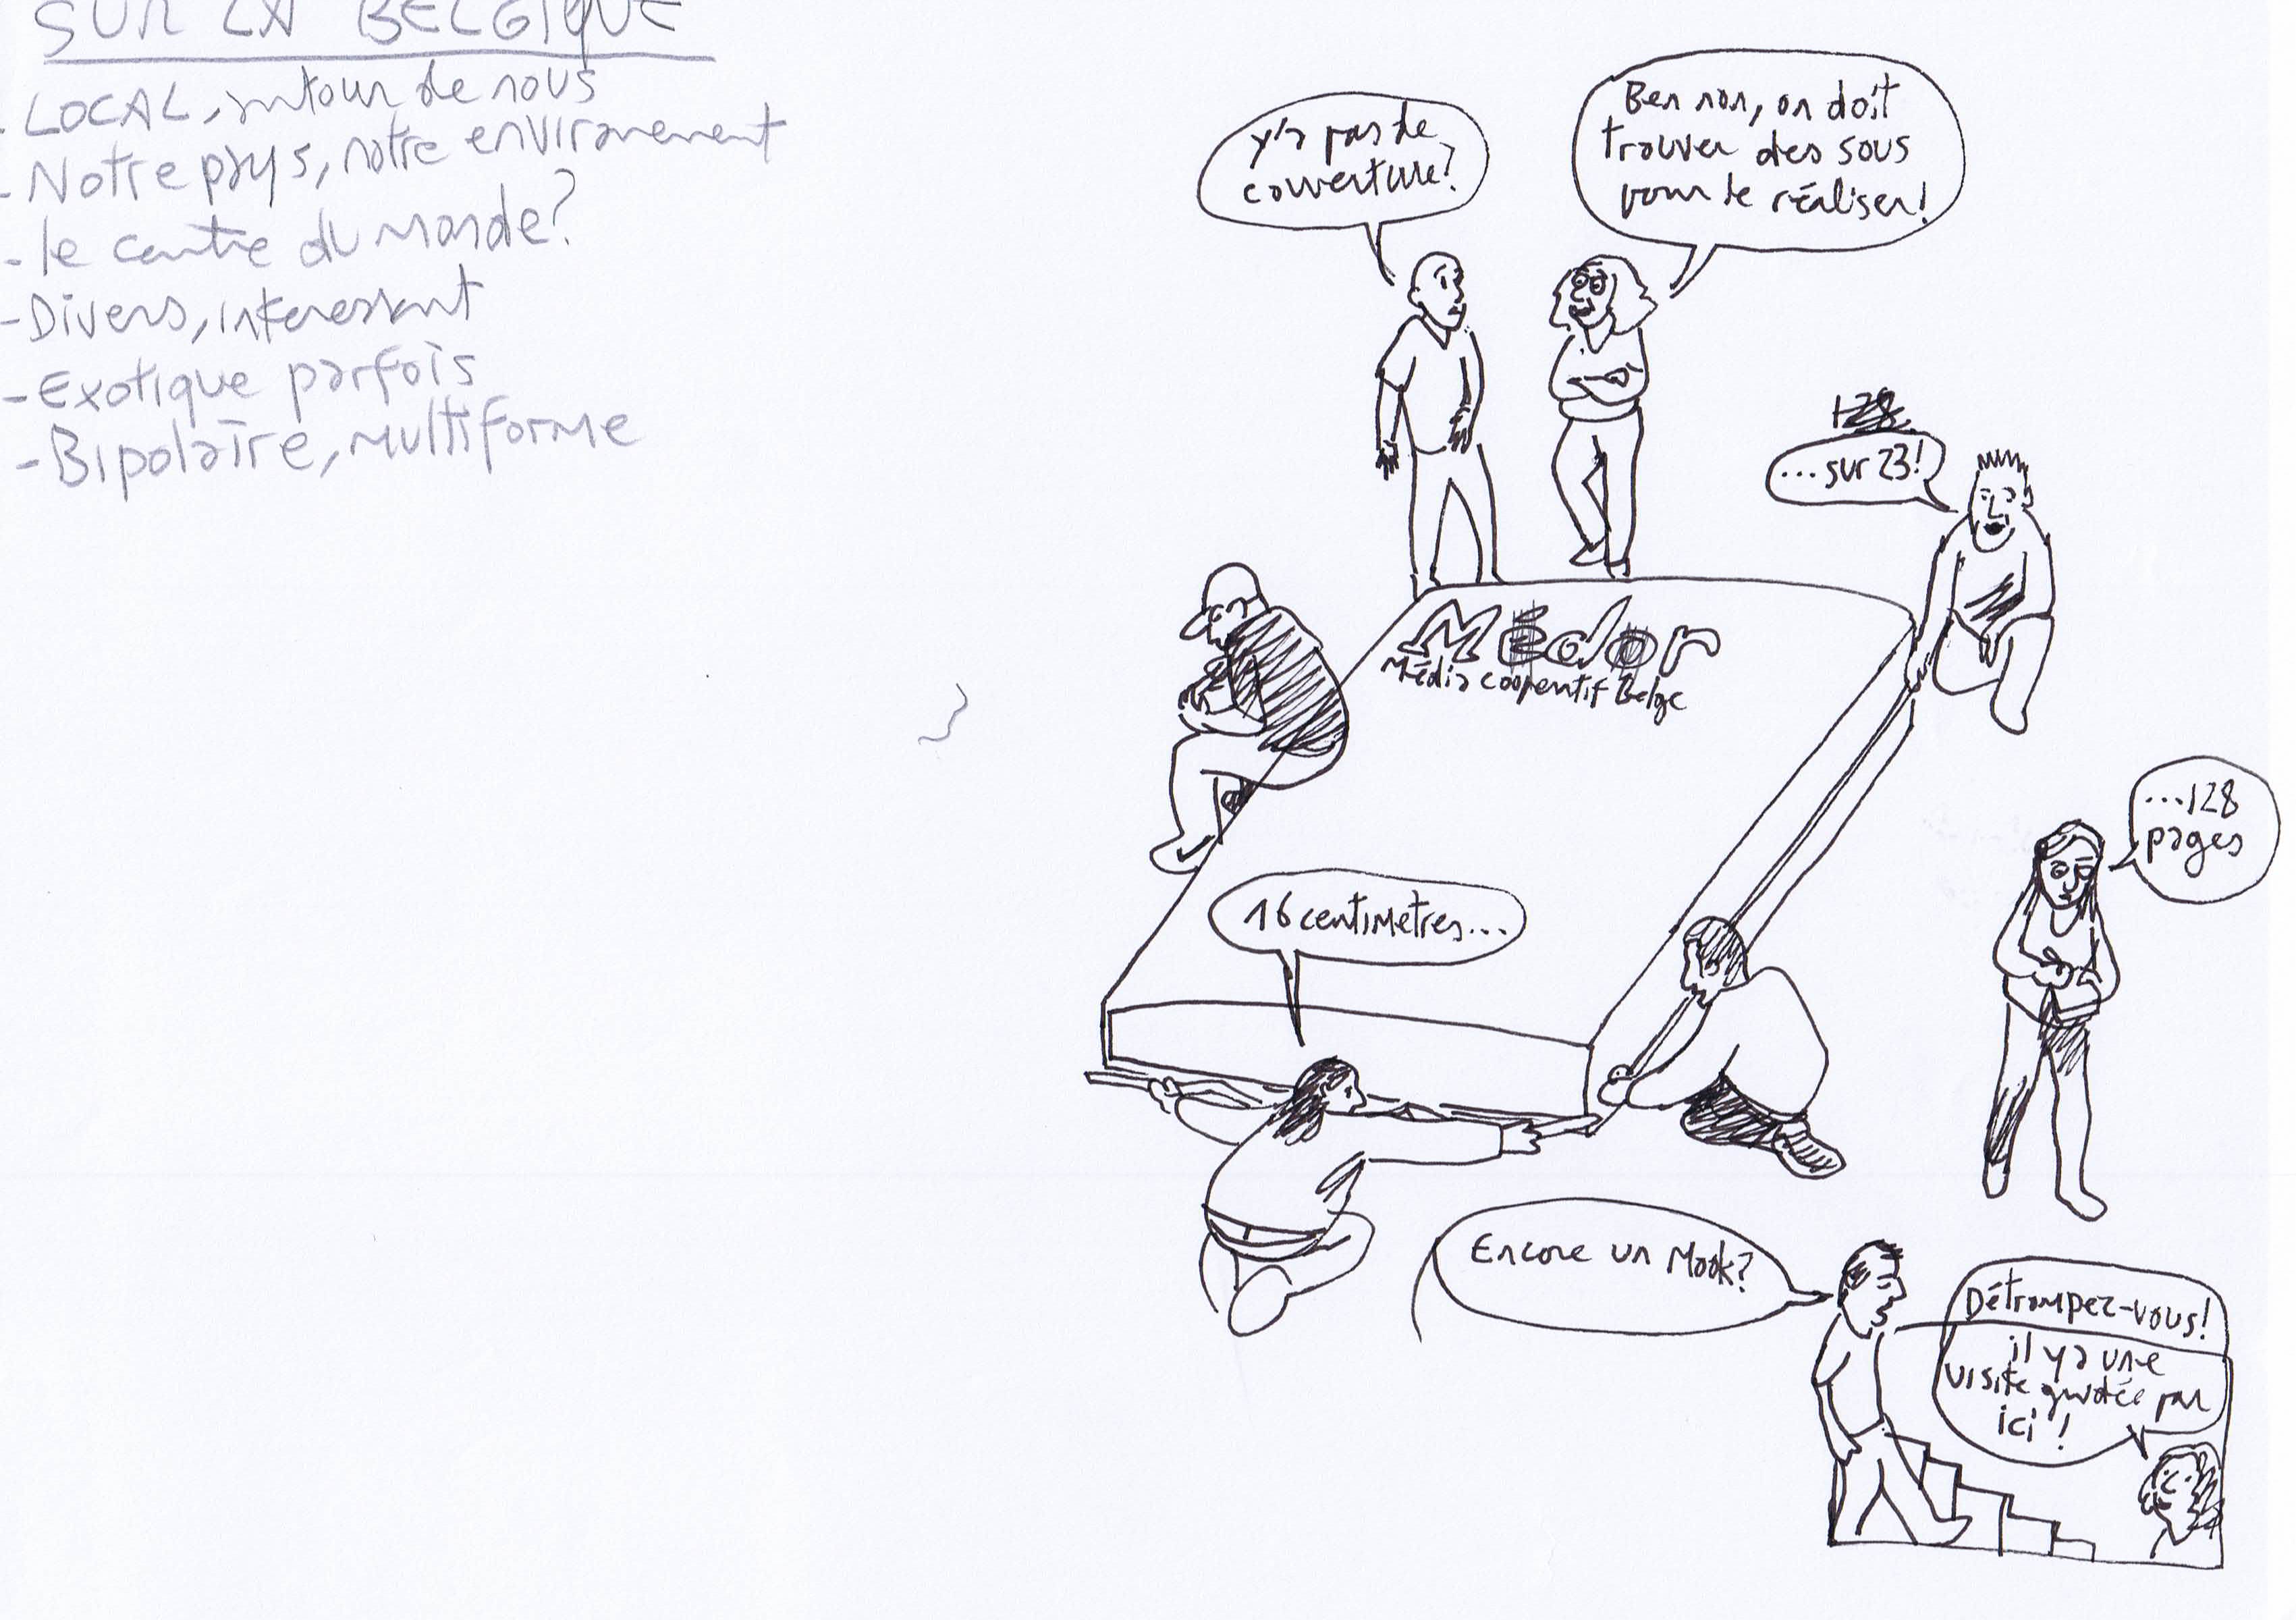 SUR LA BELGIQUE
- LOCAL, autour de nous
- Notre pays, notre environement
- le centre du monde?
- Divers, interessant
- Exotique parfois
- Bipolaire, multiforme
y'a pas de
couverture?
Ben non, on doit
trouver des sous
pour le réaliser!
128
...sur 23!
Médor
Média coopératif Belge
...128
pages
16 centimetres...
Encore un Mook?
Détrompez-vous!
il y a une
visite guidée par
ici !